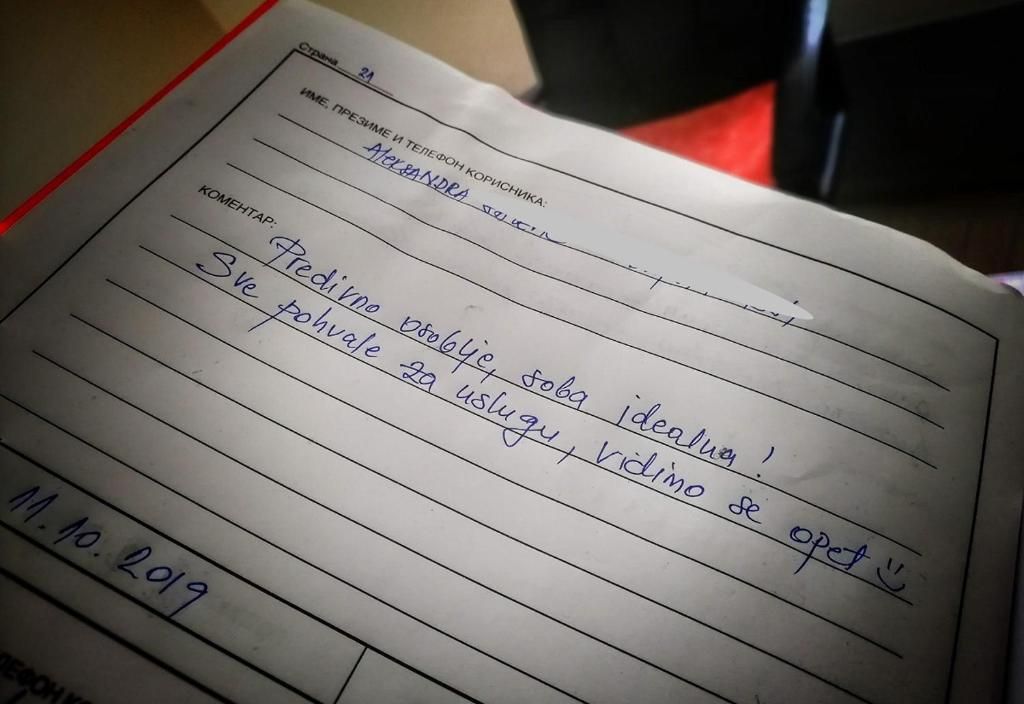 Страна 21
ИМЕ, ПРЕЗИМЕ И ТЕЛЕФОН КОРИСНИКА:
AleKSANDRA
КОМЕНТАР:
Predivno osoblje, soba idealna!
Sve pohvale za uslugu, vidimo se opet
11.10.2019